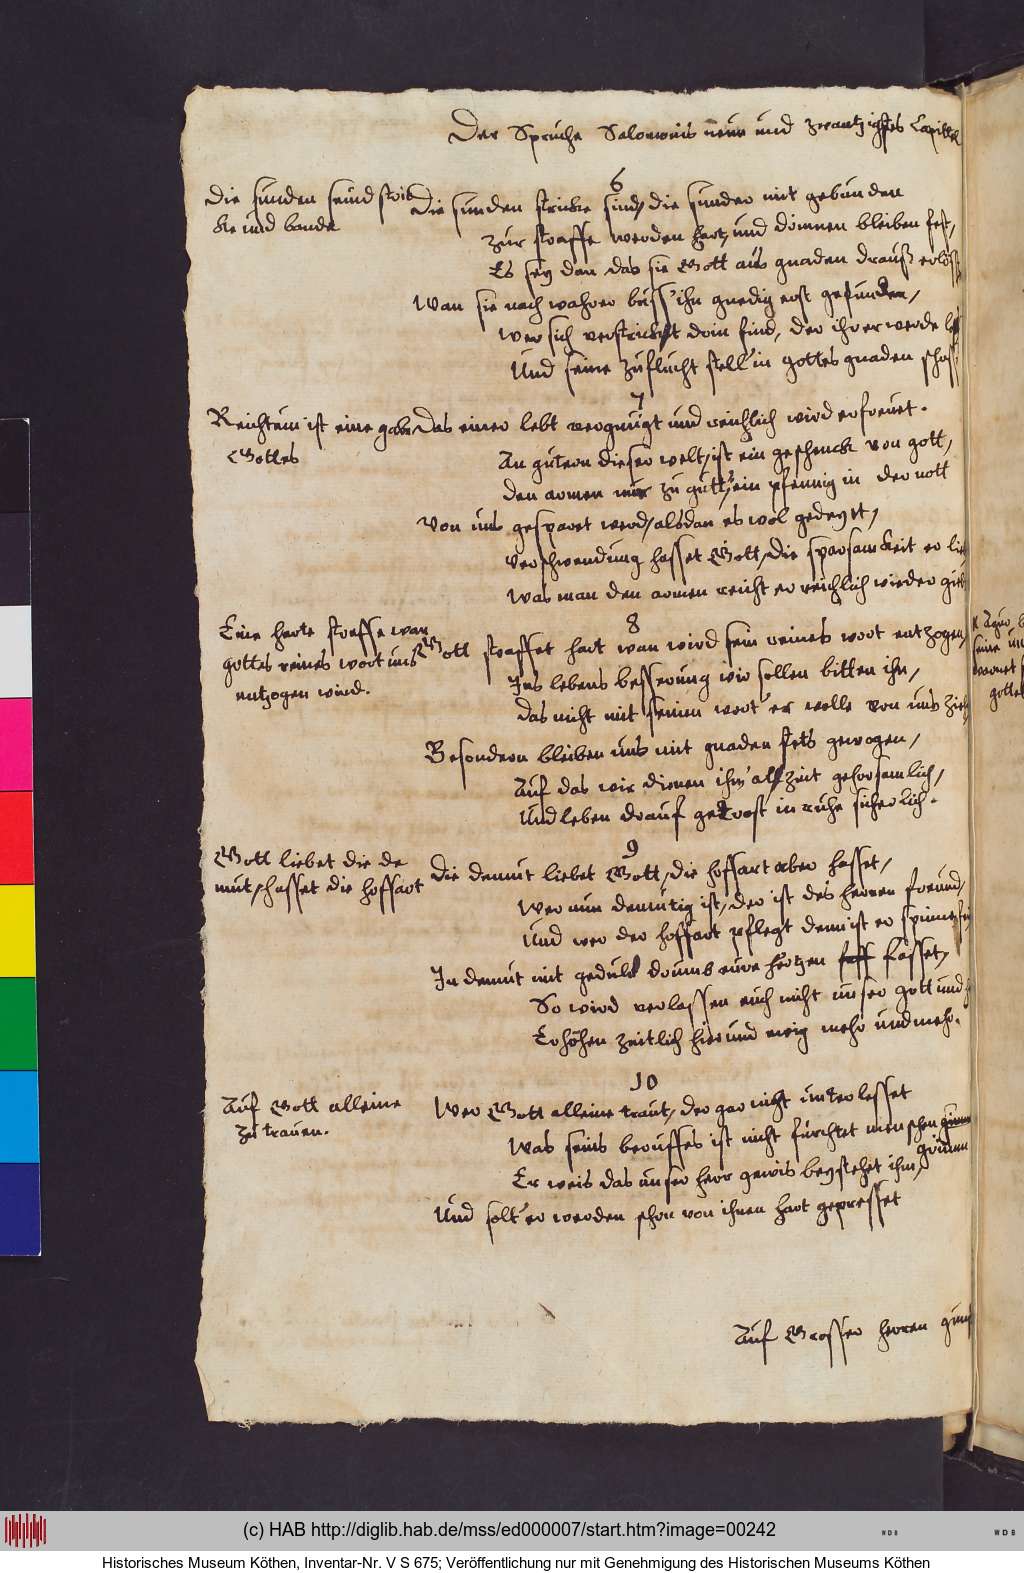 Der Spruche Salomonis neun und zwantzigstes Capittel
6
Die sunden seind strik
ke und bande
Die sunden stricke sind, die sunder mit gebunden
zur straffe werden hart, und drinnen bleiben fest,
Es sey dan das sie Gott aus gnaden drauß erlöst
Wan sie nach wahrer büss' ihn gnedig erst gefunden,
wer sich verstrickt drin find, der ihrer werde
Und seine zuflucht stell' in gottes gnaden
7
Reichtum ist eine gabe
Gottes
Das einer lebt vergnügt und reichlich wird erfreuet.
An gütern dieser welt, ist ein geschenck von gott,
den armen nur zu gutt, ein pfennig in der nott
Von uns gesparet werd, alsdan es wol gedeyet,
verschwendung hasset Gott, die sparsamkeit er
was man den armen reicht er reichlich wieder
8
Eine harte straffe wan
gottes reines wort uns
entzogen wird.
Gott straffet hart wan wird sein reines wort entzogen,
Ins lebens besserung wir sollen bitten ihn,
das nicht mit seinem wort' er wolle von uns
Besondern bleiben uns mit gnaden stets gewogen,
Auf das wir dienen ihm' allzeit gehorsamlich,
Und leben drauf getrost in ruhe sicherlich.
9
Gott liebet die de
mut, hasset die hoffart
Die demut liebet Gott, die hoffart aber hasset,
wer nun demütig ist, der ist des herren freund,
Und wer der hoffart pflegt dem ist er
In demut mit geduld drumb eure hertzen fasset,
So wird verlassen euch nicht unser gott und
Erhöhen zeitlich hier und ewig mehr und mehr.
10
Auf Gott alleine
zu trauen.
Wer Gott alleine traut, der gar nicht unterlesset
was seins beruffes ist nicht fürchtet menschen
grimm
Er weis das unser herr gewis beystehet ihm,
Und solt' er werden schon von ihnen hart gepresset
Auf Grosser herren
(c) HAB http://diglib.hab.de/mss/ed000007/start.htm?image=00242
WDB
WDB
Historisches Museum Köthen, Inventar-Nr. V S 675; Veröffentlichung nur mit Genehmigung des Historischen Museums Köthen